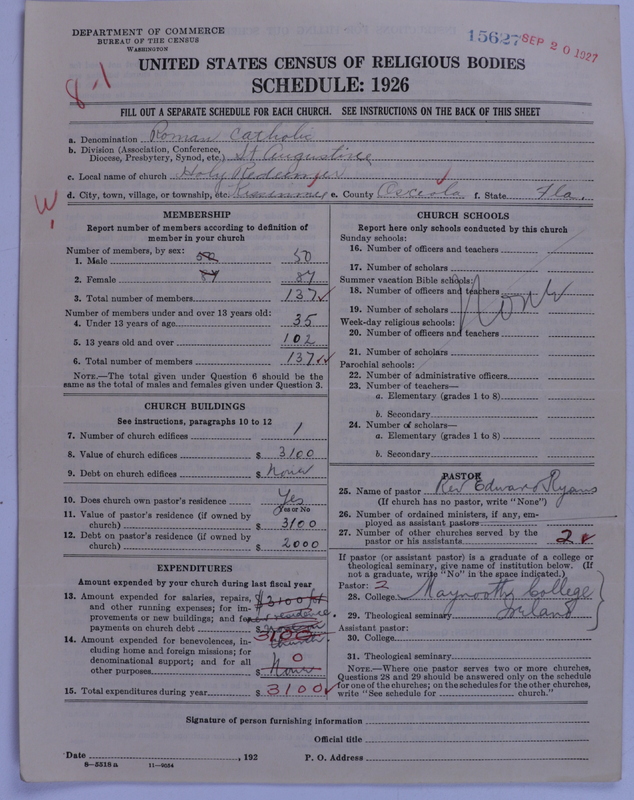 DEPARTMENT OF COMMERCE
BUREAU OF THE CENSUS
WASHINGTON
15627 SEP 20 1927
8-1
UNITED STATES CENSUS OF RELIGIOUS BODIES
SCHEDULE: 1926
FILL OUT A SEPARATE SCHEDULE FOR EACH CHURCH. SEE INSTRUCTIONS ON THE BACK OF THIS SHEET
a. Denomination Roman Catholic
b. Division (Association, Conference,
Diocese, Presbytery, Synod, etc.) St Augustine
c. Local name of church Holy Redeemer
d. City, town, village, or township, etc. Kissimmee e. County Osceola f. State Fla.
W
MEMBERSHIP
Report number of members according to definition of
member in your church
Number of members, by sex:
1. Male 50 50
2. Female 87 87
3. Total number of members 137
Number of members under and over 13 years old:
4. Under 13 years of age 35
5. 13 years old and over 102
6. Total number of members 137
NOTE.—The total given under Question 6 should be the
same as the total of males and females given under Question 3.
CHURCH BUILDINGS
See instructions, paragraphs 10 to 12
7. Number of church edifices 1
8. Value of church edifices $ 3100
9. Debt on church edifices $ None
10. Does church own pastor's residence Yes
Yes or No
11. Value of pastor's residence (if owned by
church) $ 3100
12. Debt on pastor's residence (if owned by
church) $ 2000
EXPENDITURES
Amount expended by your church during last fiscal year
13. Amount expended for salaries, repairs,
and other running expenses; for im-
provements or new buildings; and for
payments on church debt $ 3100
14. Amount expended for benevolences, in-
cluding home and foreign missions; for
denominational support; and for all
other purposes $ 0 None
15. Total expenditures during year $ 3100
CHURCH SCHOOLS
Report here only schools conducted by this church
Sunday schools:
16. Number of officers and teachers
17. Number of scholars
Summer vacation Bible schools:
18. Number of officers and teachers
19. Number of scholars
None
Week-day religious schools:
20. Number of officers and teachers
21. Number of scholars
Parochial schools:
22. Number of administrative officers
23. Number of teachers—
a. Elementary (grades 1 to 8)
b. Secondary
24. Number of scholars—
a. Elementary (grades 1 to 8)
b. Secondary
PASTOR
25. Name of pastor Rev Edward Ryans
(If church has no pastor, write "None")
26. Number of ordained ministers, if any, em-
ployed as assistant pastors
27. Number of other churches served by the
pastor or his assistants 2
If pastor (or assistant pastor) is a graduate of a college or
theological seminary, give name of institution below. (If
not a graduate, write "No" in the space indicated.)
Pastor: 2
28. College Maynooth College
29. Theological seminary Ireland
Assistant pastor:
30. College
31. Theological seminary
NOTE.—Where one pastor serves two or more churches,
Questions 28 and 29 should be answered only on the schedule
for one of the churches; on the schedules for the other churches,
write "See schedule for church."
Signature of person furnishing information
Official title
Date , 192 P. O. Address
8—5518 a 11—9084